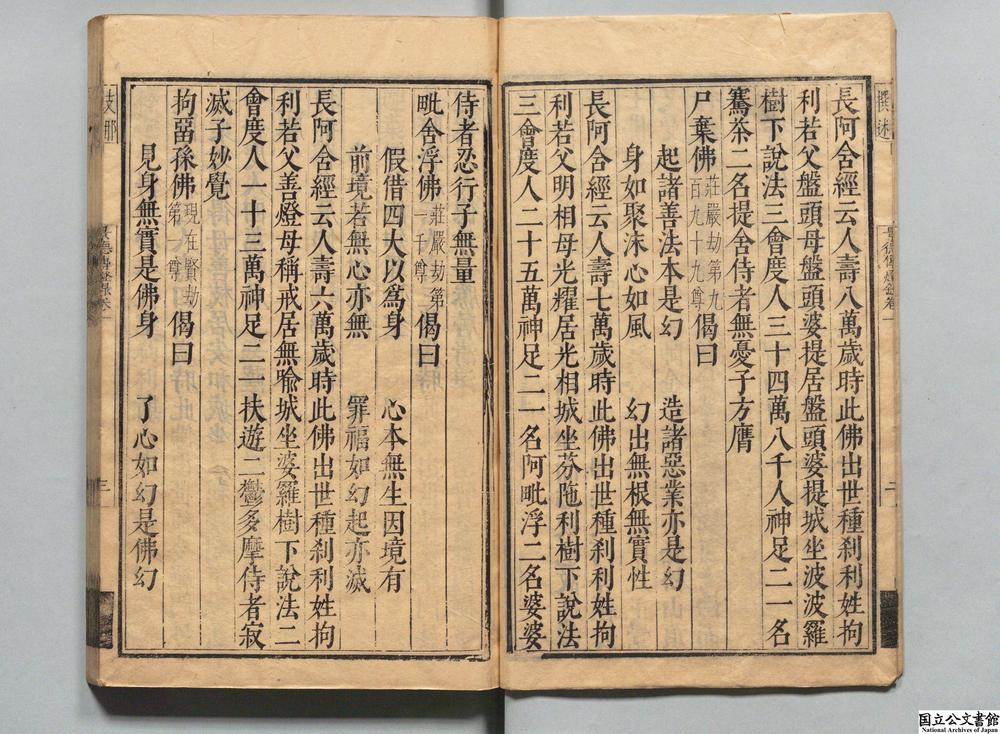 長阿含經云人壽八萬歲時此佛出世種剎利姓拘
利若父盤頭母盤頭婆提居盤頭婆提城坐波波羅
樹下說法三會度人三十四萬八千人神足二一名
騫茶二名提舍侍者無憂子方膺
尸棄佛莊嚴劫第九百九十九尊偈曰
起諸善法本是幻　造諸惡業亦是幻
身如聚沫心如風　幻出無根無實性
長阿含經云人壽七萬歲時此佛出世種剎利姓拘
利若父明相母光耀居光相城坐芬陁利樹下說法
三會度人二十五萬神足二一名阿毗浮二名婆婆
侍者忍行子無量
毗舍浮佛莊嚴劫第一千尊偈曰
假借四大以爲身　心本無生因境有
前境若無心亦無　罪福如幻起亦滅
長阿含經云人壽六萬歲時此佛出世種剎利姓拘
利若父善燈母稱戒居無喻城坐婆羅樹下說法二
會度人一十三萬神足二一扶遊二鬱多摩侍者寂
滅子妙覺
拘留孫佛現在賢劫第一尊偈曰
見身無實是佛身　了心如幻是佛幻
国立公文書館
National Archives of Japan